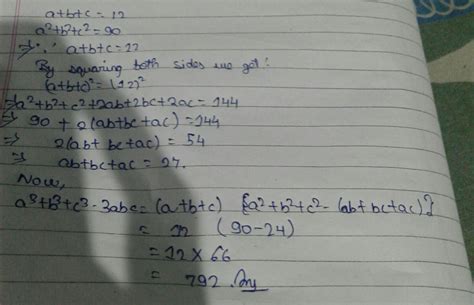 a+b+c = 12
a²+b²+c² = 90
⇒ ∵ a+b+c = 12
By squaring both sides we got!
(a+b+c)² = (12)²
⇒ a²+b²+c²+2ab+2bc+2ac = 144
⇒ 90 + 2(ab+bc+ac) = 144
⇒ 2(ab+bc+ac) = 54
⇒ ab+bc+ac = 27.
Now,
a³+b³+c³-3abc = (a+b+c) [a²+b²+c²-(ab+bc+ac)]
= 12 (90-24)
= 12 × 66
= 792. Ans